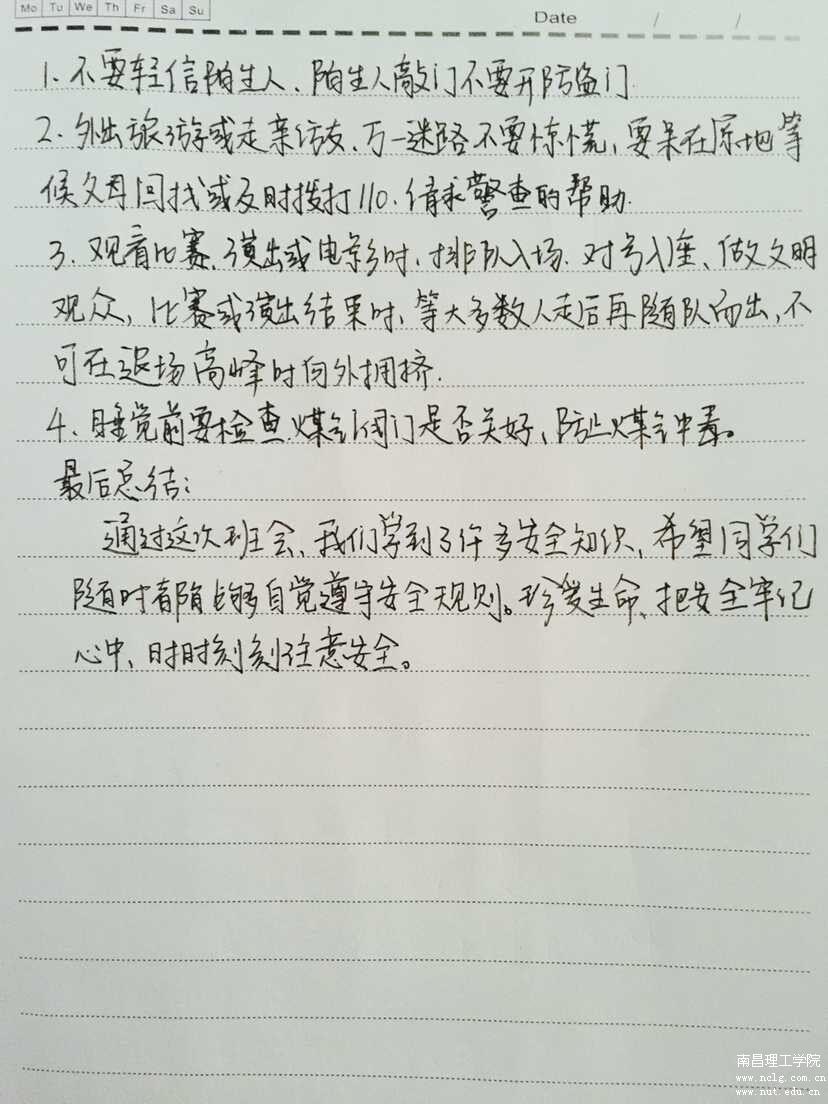 Mo Tu We Th Fr Sa Su
Date / /
1、不要轻信陌生人、陌生人敲门不要开防盗门.
2、外出旅游或走亲访友、万一迷路不要惊慌,要呆在原地等
候父母回找或及时拨打110.请求警查的帮助.
3、观看比赛、演出或电影时、排队入场.对号入座、做文明
观众,比赛或演出结果时、等大多数人走后再随队而出,不
可在退场高峰时向外拥挤.
4、睡觉前要检查煤气阀门是否关好、防止煤气中毒。
最后总结:
通过这次班会、我们学到了许多安全知识,希望同学们
随时都能够自觉遵守安全规则。珍爱生命、把安全牢记
心中、时时刻刻注意安全。
南昌理工学院
www.nclg.com.cn
www.nut.edu.cn